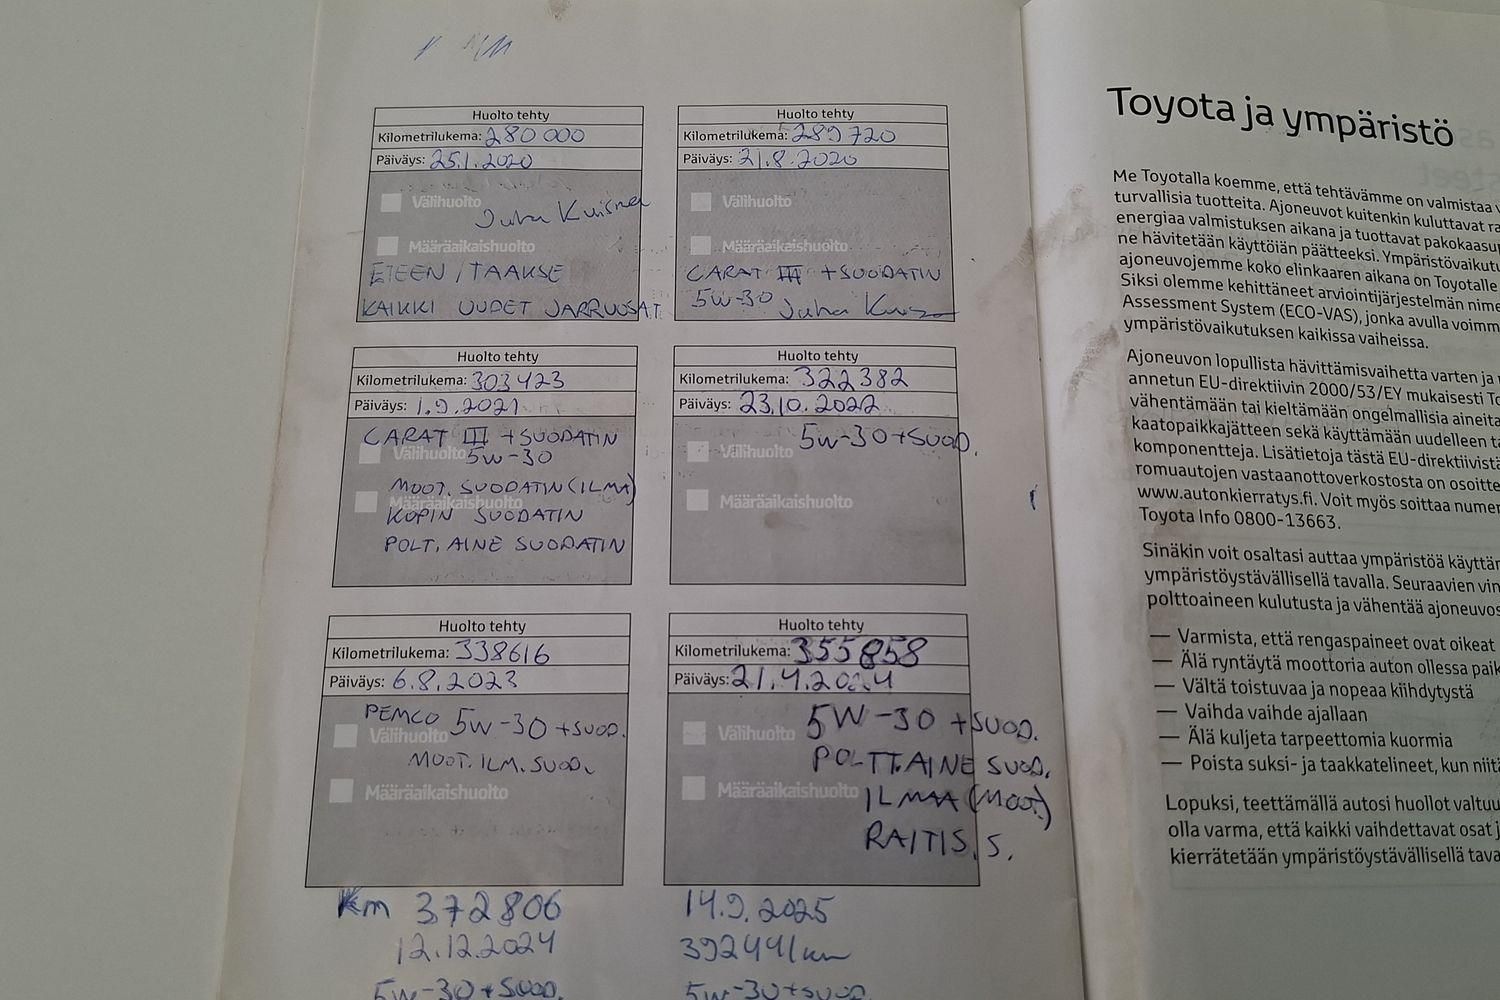 Huolto tehty
Kilometrilukema: 280 000
Päiväys: 25.1.2020
Välihuolto
Juha
Määräaikaishuolto
ETEEN / TAAKSE
KAIKKI UUDET JARRUOSAT
Huolto tehty
Kilometrilukema: 289 720
Päiväys: 21.8.2020
Välihuolto
Määräaikaishuolto
CARAT III +SUODATIN
5W-30 Juha
Huolto tehty
Kilometrilukema: 303 423
Päiväys: 1.9.2021
CARAT III +SUODATIN
Välihuolto 5W-30
MOOT. SUODATIN (ILMA)
Määräaikaishuolto
KOPIN SUODATIN
POLT. AINE SUODATIN
Huolto tehty
Kilometrilukema: 322382
Päiväys: 23.10.2022
5W-30+SUOD.
Välihuolto
Määräaikaishuolto
Huolto tehty
Kilometrilukema: 338616
Päiväys: 6.8.2023
PEMCO 5W-30 +SUOD.
Välihuolto
MOOT. ILM. SUOD.
Määräaikaishuolto
Huolto tehty
Kilometrilukema: 355858
Päiväys: 21.4.2024
5W-30 +SUOD.
Välihuolto
POLTT.AINE SUOD.
Määräaikaishuolto ILMAA (MOOT.)
RAITIS. S.
Km 372806
12.12.2024
5W-30+SUOD.
14.9.2025
392441/km
5W-30+SUOD.
Toyota ja ympäristö
Me Toyotalla koemme, että tehtävämme on valmistaa
turvallisia tuotteita. Ajoneuvot kuitenkin kuluttavat
energiaa valmistuksen aikana ja tuottavat
ne hävitetään käyttöiän päätteeksi.
ajoneuvojemme koko elinkaaren aikana on Toyotalle
Siksi olemme kehittäneet arviointijärjestelmän
Assessment System (ECO-VAS), jonka avulla
ympäristövaikutuksen kaikissa vaiheissa.
Ajoneuvon lopullista hävittämisvaihetta varten ja
annetun EU-direktiivin 2000/53/EY mukaisesti
vähentämään tai kieltämään ongelmallisia
kaatopaikkajätteen sekä käyttämään uudelleen
komponentteja. Lisätietoja tästä EU-direktiivistä
romuautojen vastaanottoverkostosta on
www.autonkierratys.fi. Voit myös soittaa
Toyota Info 0800-13663.
Sinäkin voit osaltasi auttaa ympäristöä
ympäristöystävällisellä tavalla. Seuraavien
polttoaineen kulutusta ja vähentää
— Varmista, että rengaspaineet ovat oikeat
— Älä ryntäytä moottoria auton ollessa
— Vältä toistuvaa ja nopeaa kiihdytystä
— Vaihda vaihde ajallaan
— Älä kuljeta tarpeettomia kuormia
— Poista suksi- ja taakkatelineet, kun
Lopuksi, teettämällä autosi huollot
olla varma, että kaikki vaihdettavat osat
kierrätetään ympäristöystävällisellä